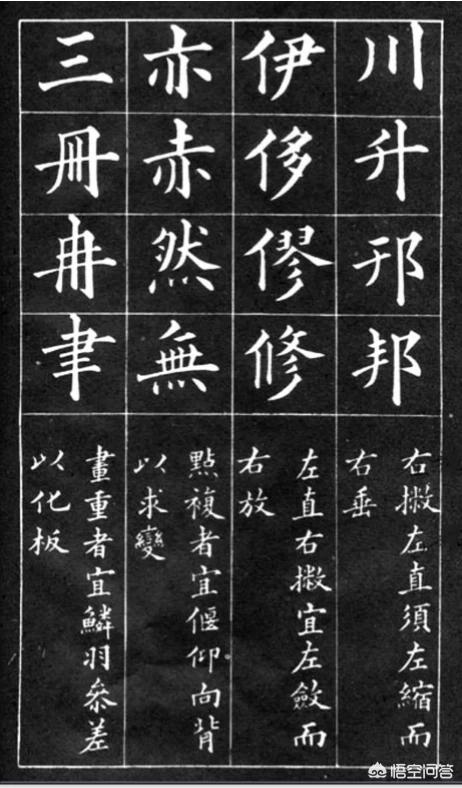 川升邗邦
右撇左直須左縮而
右垂
伊侈僇修
左直右撇宜左斂而
右放
亦赤然無
點複者宜偃仰向背
以求變
三冊冉聿
畫重者宜鱗羽叅差
以化板
悟空问答